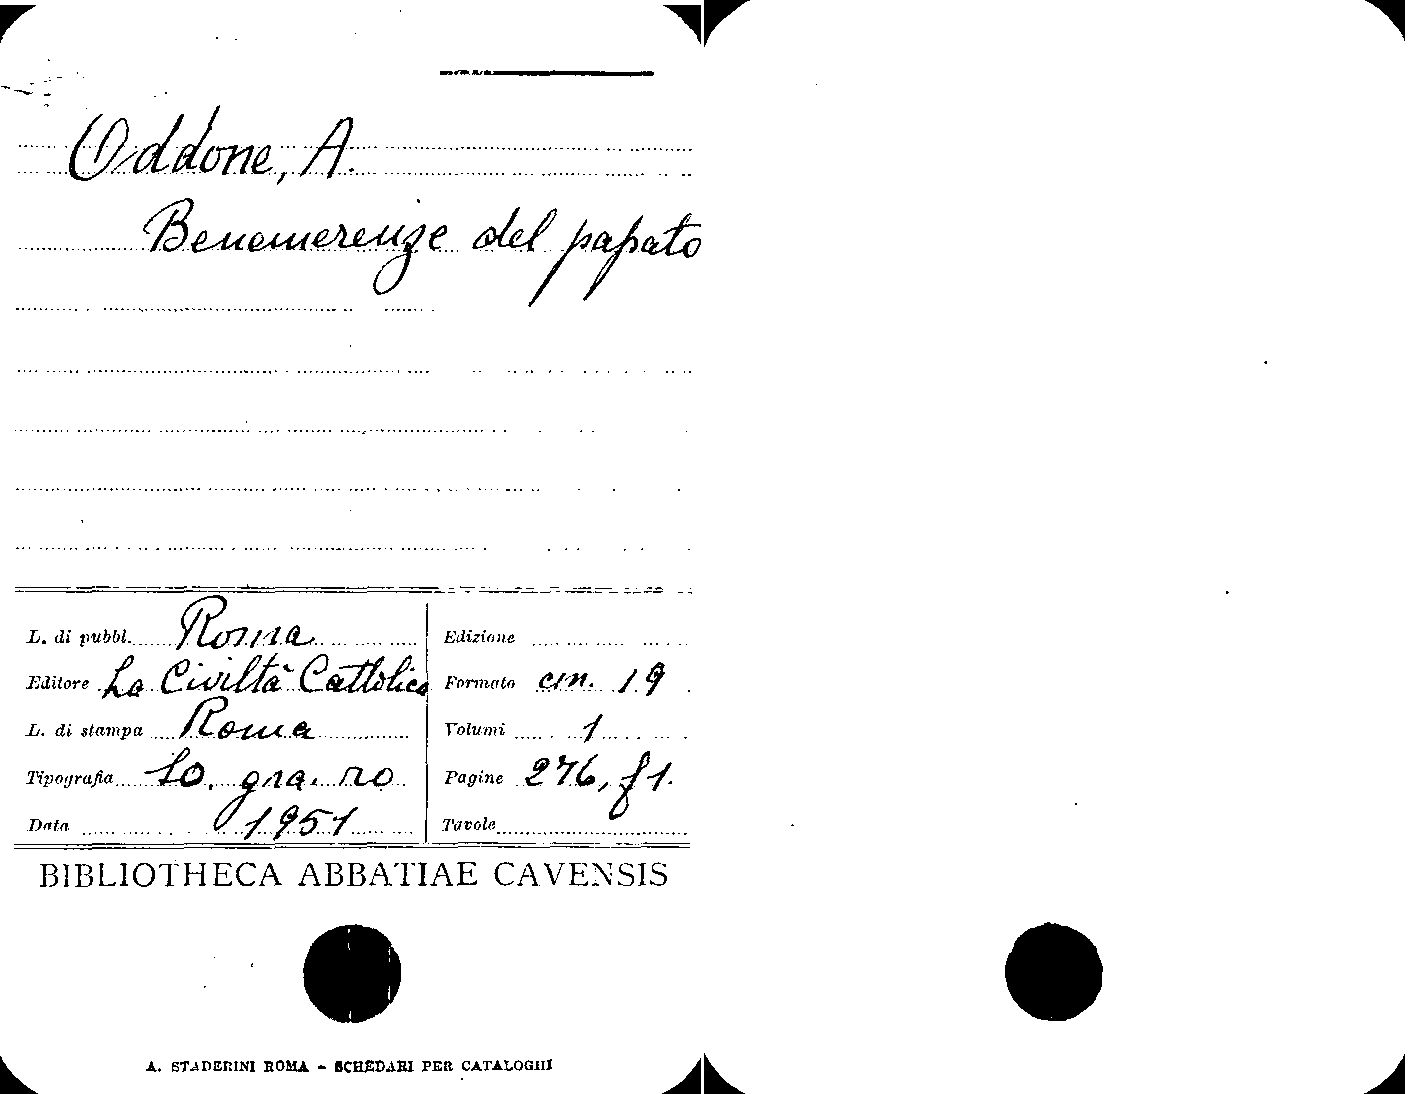 Oddone, A.
Benemerenze del papato
L. di pubbl. Roma
Editore La Civiltà Cattolica
L. di stampa Roma
Tipografia Lo. gra. ro
Data 1951
Edizione
Formato cm. 19
Volumi 1
Pagine 276, f 1.
Tavole
BIBLIOTHECA ABBATIAE CAVENSIS
A. STADERINI ROMA - SCHEDARI PER CATALOGHI